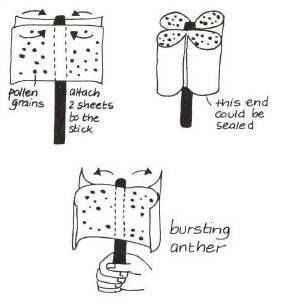 pollen
grains
attach
2 sheets
to the
stick
this end
could be
sealed
bursting
anther